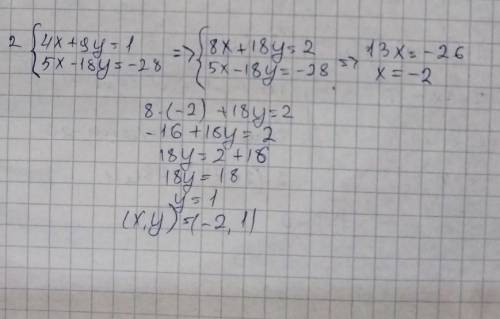 2 { 4x+9y=1 => { 8x+18y=2 => 13x=-26
5x-18y=-28 5x-18y=-28 x=-2
8·(-2)+18y=2
-16+18y=2
18y=2+16
18y=18
y=1
(x,y)=(-2,1)